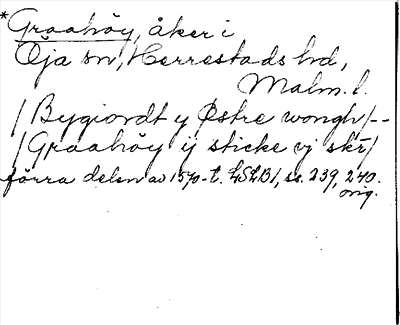 *Graahöy, åker i
Öja sn, Herrestads hd,
Malm. l.
/Bygiordt y Østre wongh/--
/Graahöy ij sticke vj skr/
förra delen av 1570-t. LSLB1, ss. 239, 240.
orig.